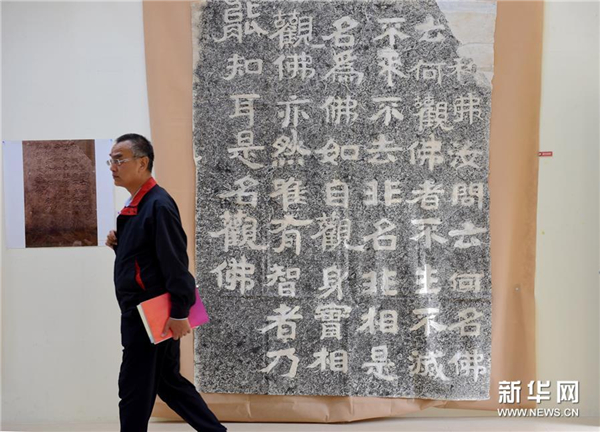 利弗汝問云何名佛
云何觀佛者不生不滅
不来不去非名非相是
名為佛如自觀身實相
觀佛亦然唯有智者乃
能知耳是名觀佛
新华网
WWW.NEWS.CN